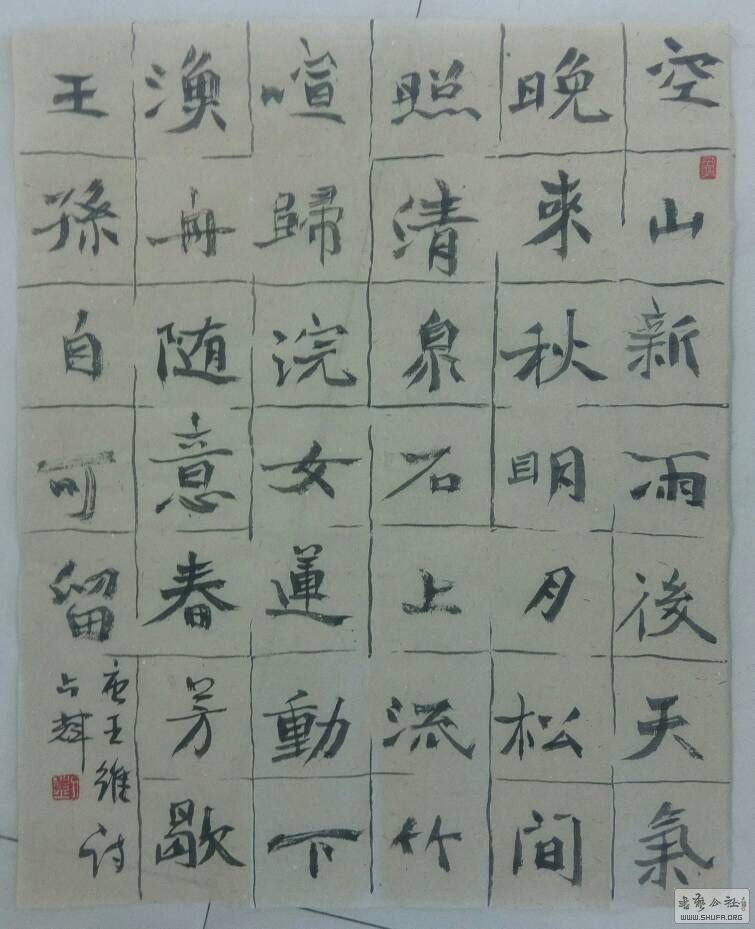 空山新雨後天氣
晚來秋明月松間
照清泉石上流竹
喧歸浣女蓮動下
漁舟随意春芳歇
王孫自可留
唐王維诗
占辉
書藝公社
WWW.SHUFA.ORG